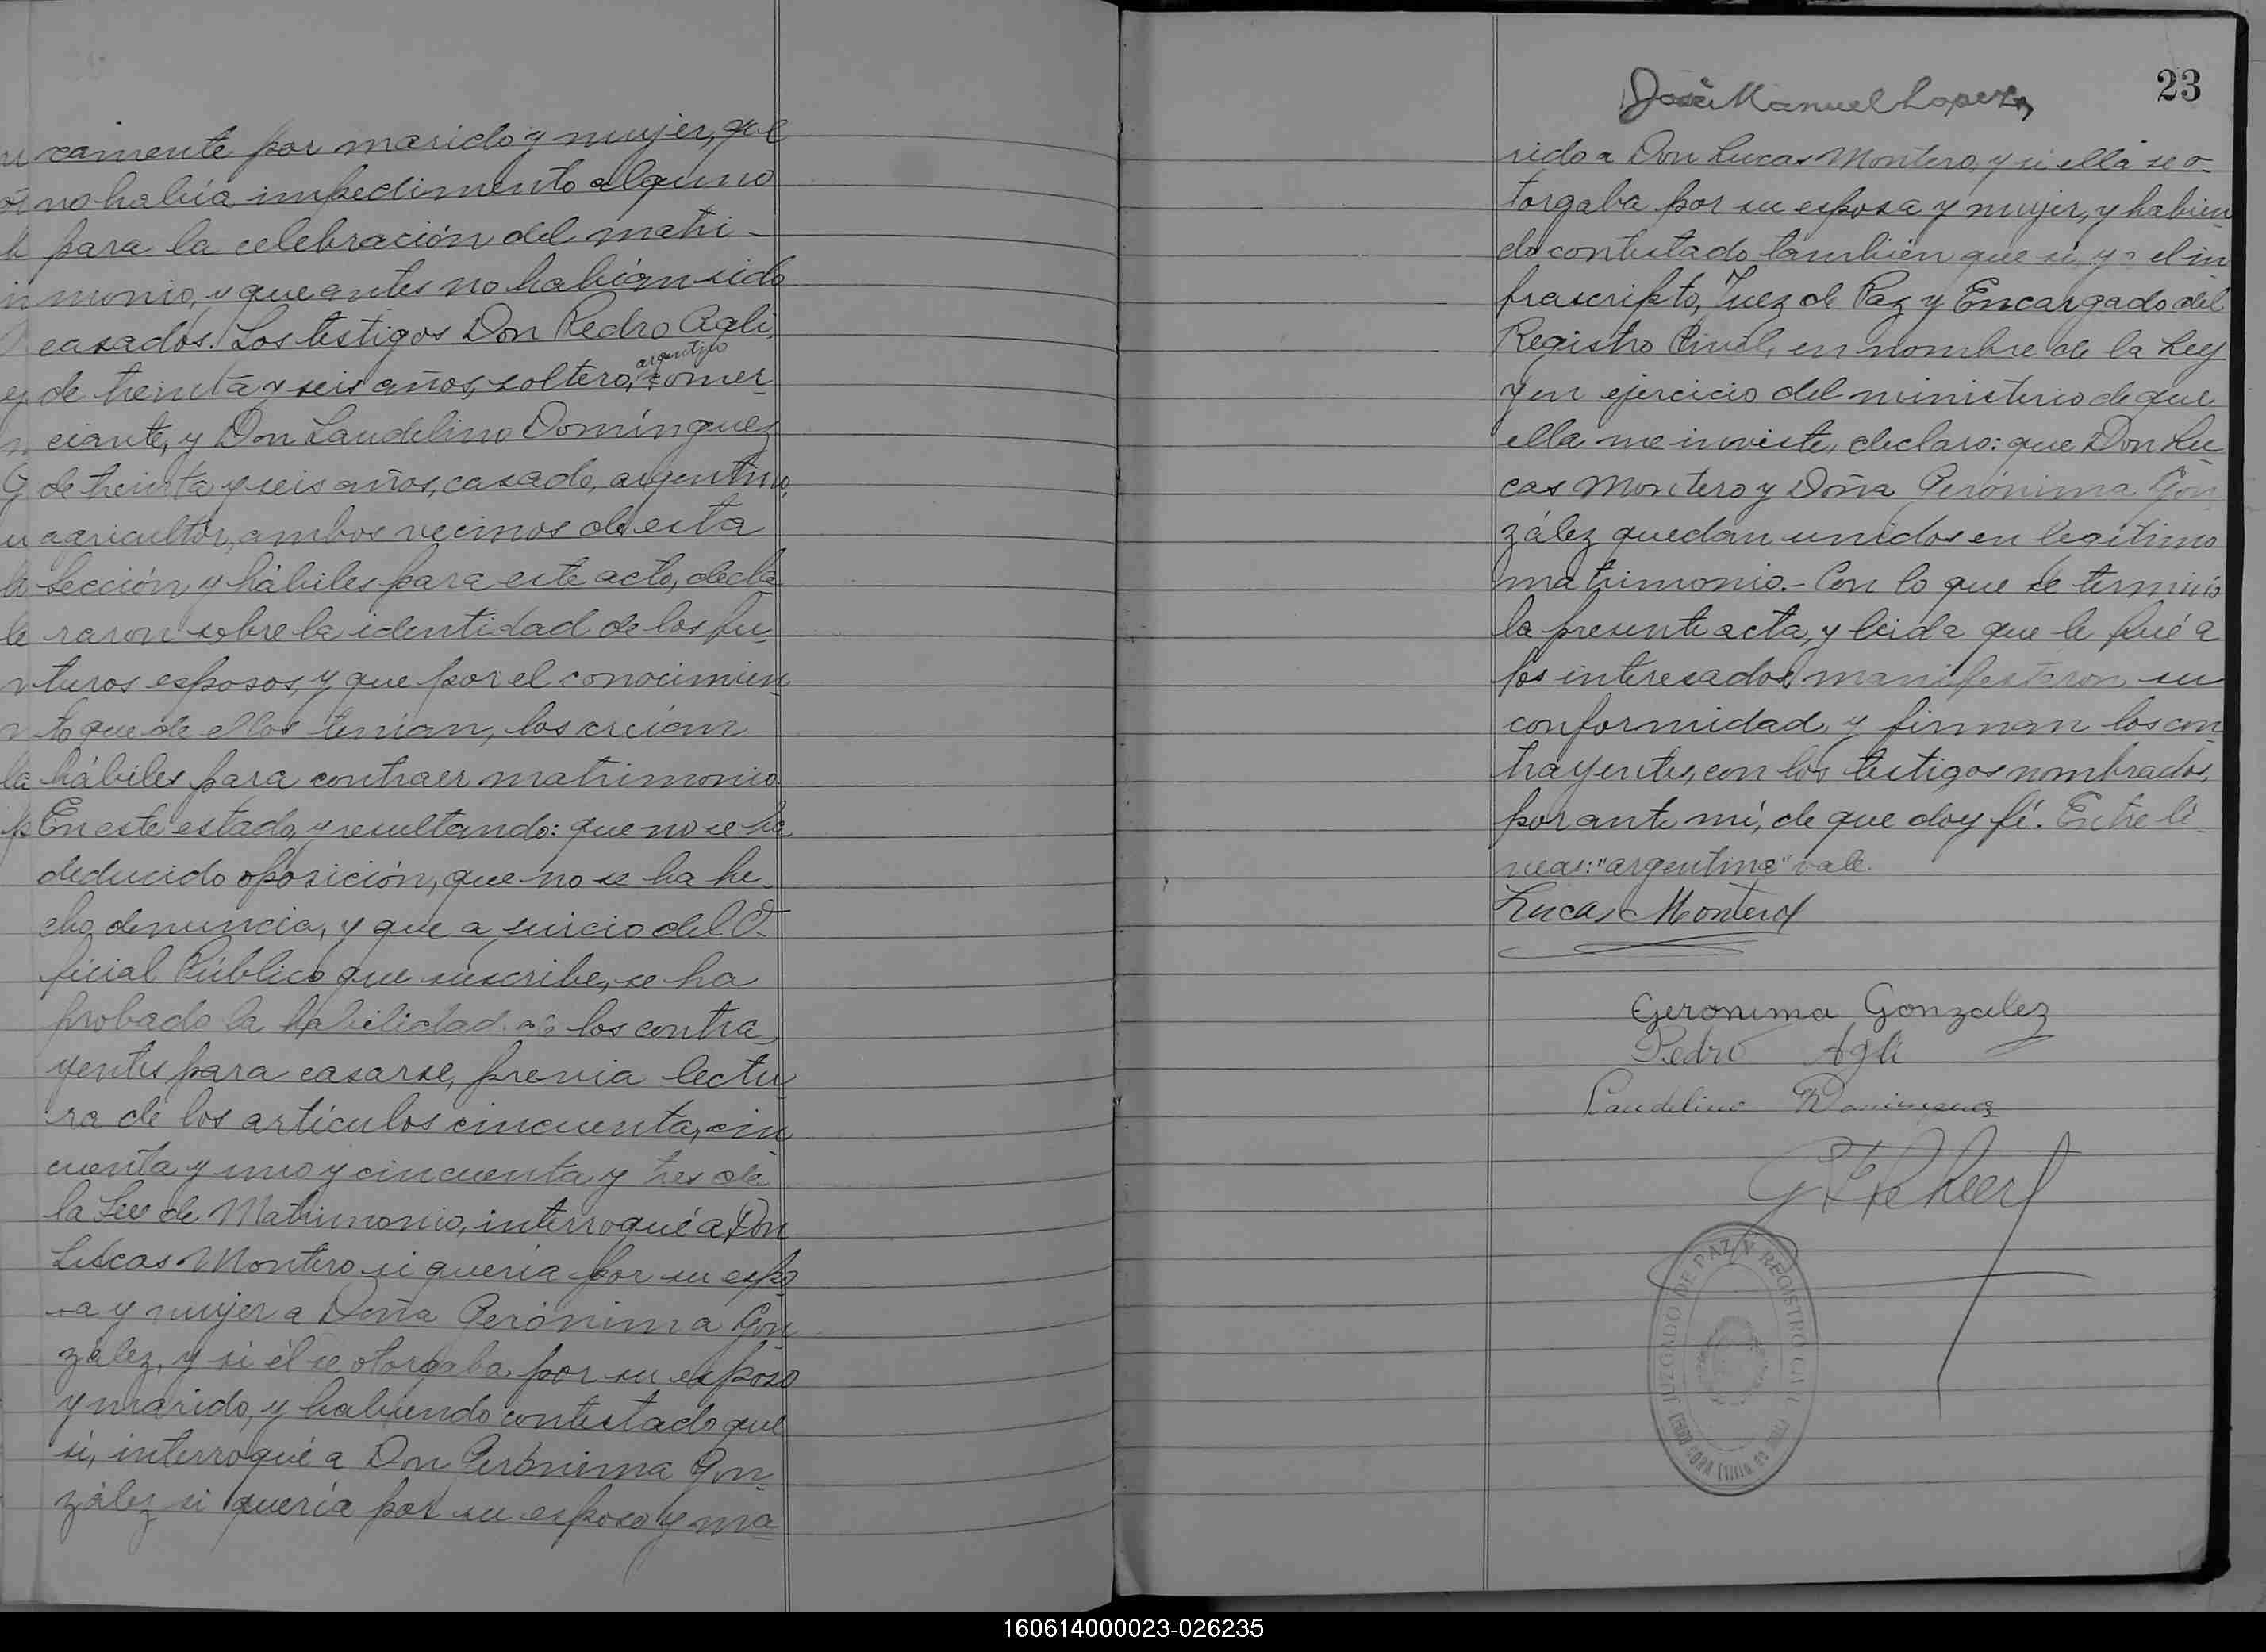 camente por marido y mujer, que
no había impedimento alguno
para la celebración del matri-
monio, y que antes no habían sido
casados. Los testigos Don Pedro Agli,
argentino
de treinta y seis años, soltero, comer
ciante, y Don Laudelino Domínguez
de treinta y seis años, casado, argentino,
agricultor, ambos vecinos de esta
Sección y hábiles para este acto, decla
raron sobre la identidad de los fu-
turos esposos, y que por el conocimien
to que de ellos tenían, los creían
hábiles para contraer matrimonio.
En este estado, y resultando: que no se ha
deducido oposición, que no se ha he-
cho denuncia, y que a juicio del O-
ficial Público que suscribe, se ha
probado la habilidad de los contra
yentes para casarse, previa lectu
ra de los artículos cincuenta, cin
cuenta y uno y cincuenta y tres de
la Ley de Matrimonio, interrogué a Don
Lucas Montero si quería por su espo
sa y mujer a Doña Gerónima Gon
zález, y si él se otorgaba por su esposo
y marido, y habiendo contestado que
si, interrogué a Don Gerónima Gon-
zález si quería por su esposo y ma
23
José Manuel Lopez
rido a Don Lucas Montero, y si ella se o-
torgaba por su esposa y mujer, y habien
do contestado también que si, yo el in
frascripto, Juez de Paz y Encargado del
Registro Civil, en nombre de la Ley
y en ejercicio del ministerio de que
ella me inviste, declaro: que Don Lu
cas Montero y Doña Gerónima Gon
zález quedan unidos en legítimo
matrimonio.- Con lo que se terminó
la presente acta, y leida que le fué a
los interesados manifestaron su
conformidad, y firman los con
trayentes, con los testigos nombrados,
por ante mí, de que doy fé. Entre lí-
neas: "argentino" vale.
Lucas Montero
Geronima Gonzalez
Pedro Agli
Laudelino Dominguez
JUZGADO DE PAZ Y REGISTRO CIVIL
160614000023-026235